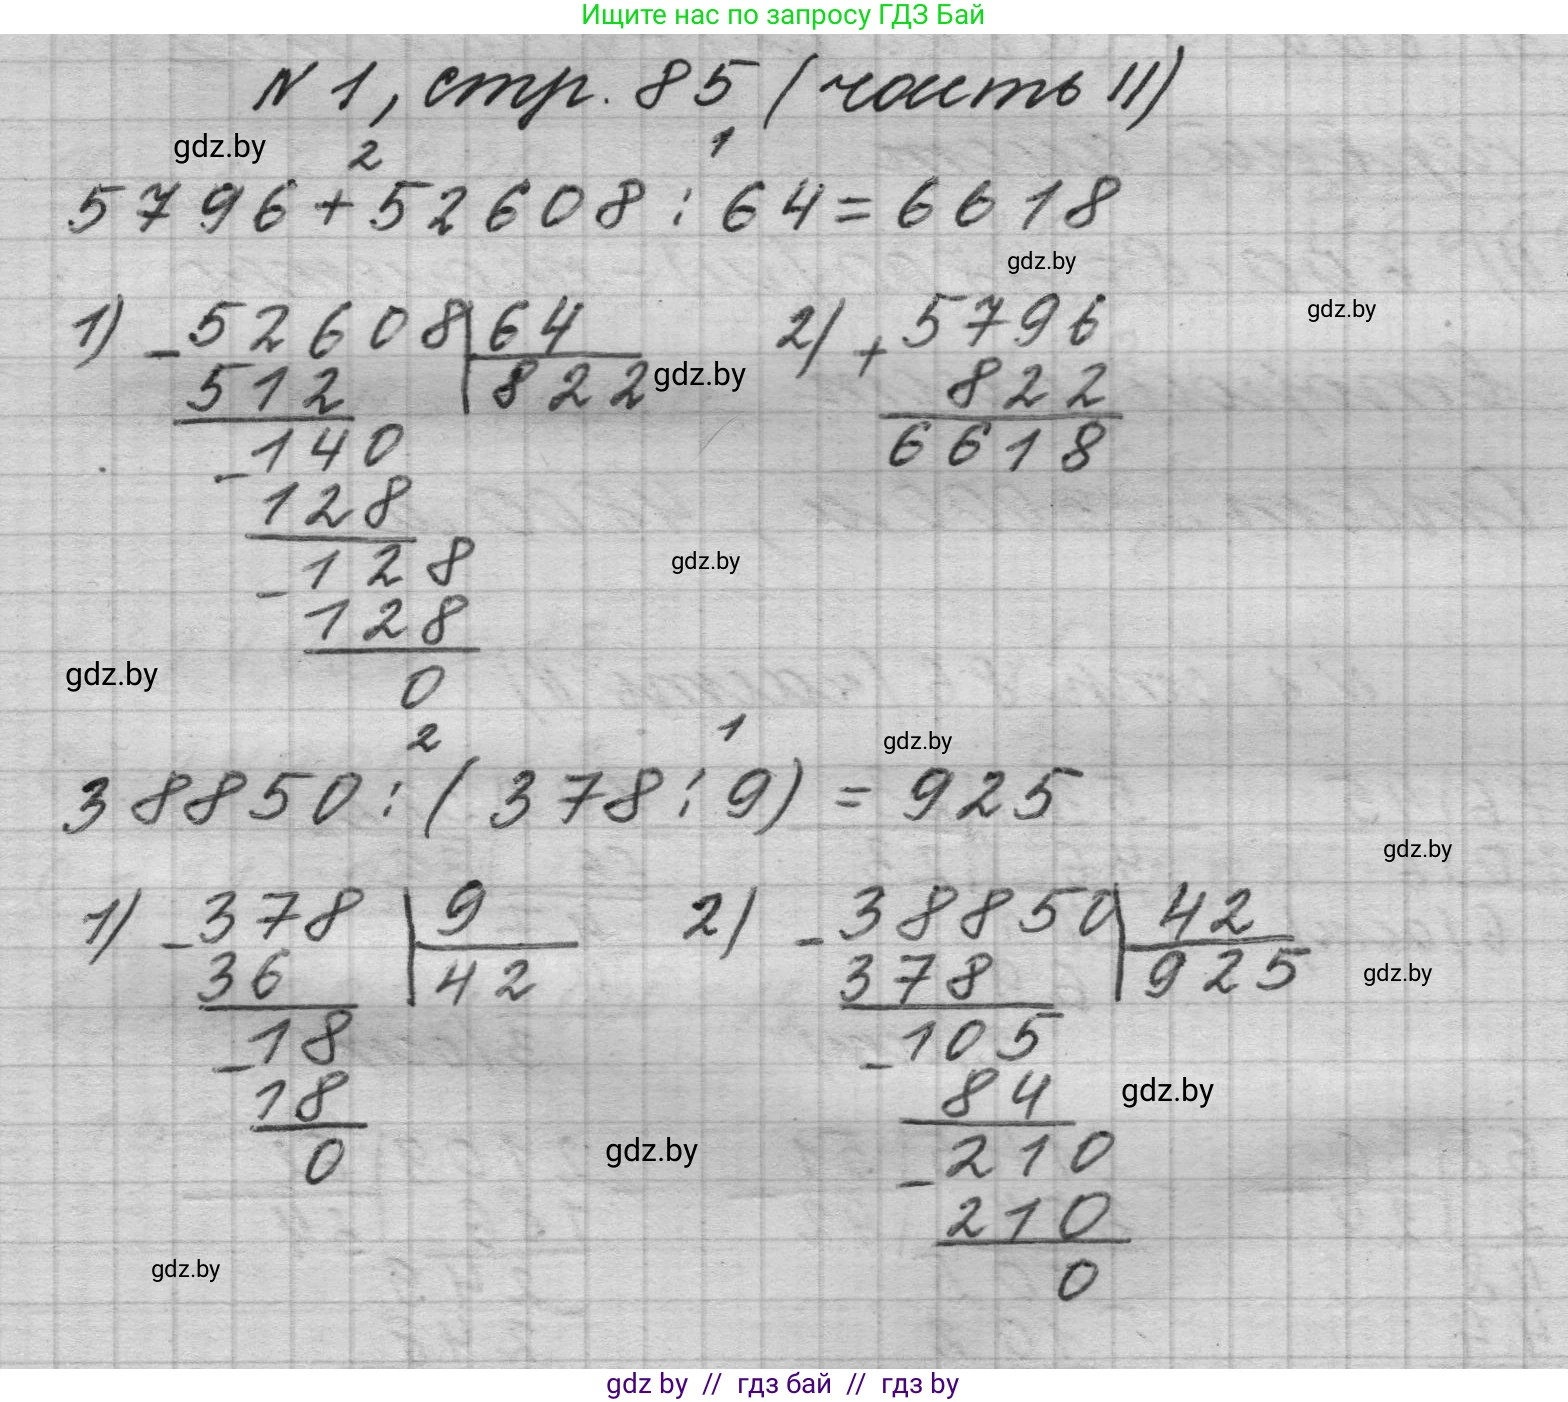 Ищите нас по запросу ГДЗ Бай
N 1, стр. 85 (часть II)
gdz.by
2 1
5796+52608:64=6618
gdz.by
1) -52608|64 2) +5796 gdz.by
512 822 gdz.by 822
-140 6618
128
-128 gdz.by
128
gdz.by
0
2 1 gdz.by
38850:(378:9)=925
gdz.by
1) -378|9 2) -38850|42
36 42 378 925 gdz.by
-18 -105
18 84 gdz.by
0 gdz.by -210
210
gdz.by 0
gdz by // гдз бай // гдз by